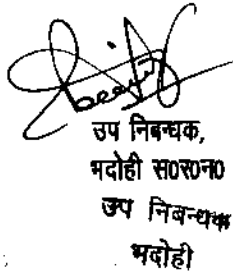 उप निबन्धक,
भदोही स0र0न0
उप निबन्धक
भदोही